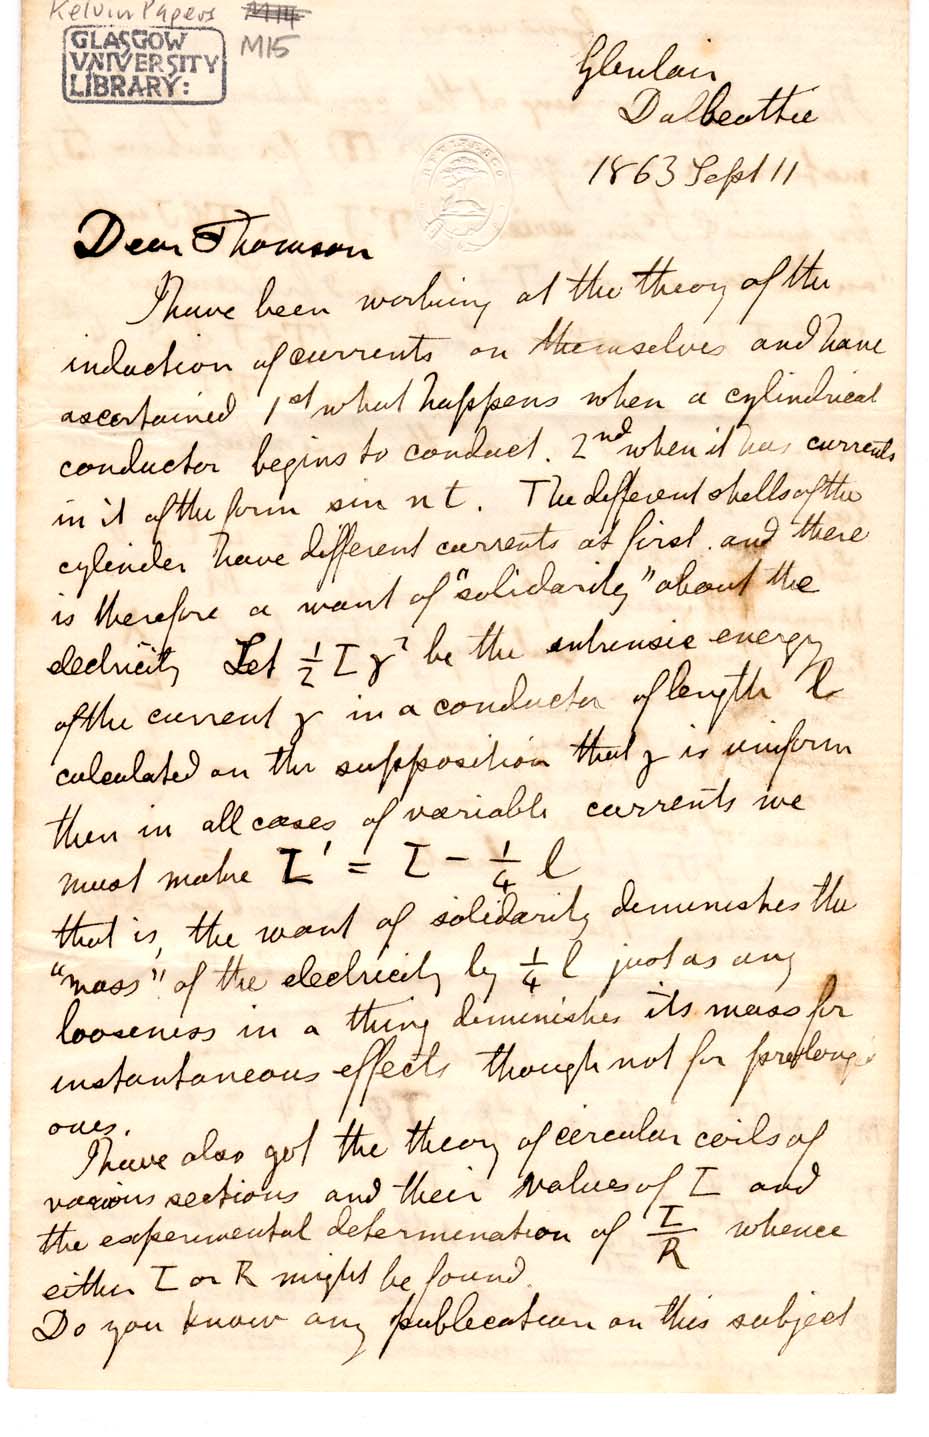 Kelvin Papers
M14
M15
GLASGOW
VNIVERSITY
LIBRARY:
Glenlair
Dalbeattie
1863 Sept 11
Dear Thomson
I have been working at the theory of the
induction of currents on themselves and have
ascertained 1st what happens when a cylindrical
conductor begins to conduct. 2nd when it has currents
in it of the form sin nt. The different shells of the
cylinder have different currents at first. and there
is therefore a want of "solidarity" about the
electricity Let ½ I γ² be the intrinsic energy
of the current γ in a conductor of length l
calculated on the supposition that γ is uniform
then in all cases of variable currents we
must make I' = I - ¼ l
that is, the want of solidarity diminishes the
"mass" of the electricity by ¼ l just as any
looseness in a thing diminishes its mass for
instantaneous effects though not for prolong
ones.
I have also got the theory of circular coils of
various sections and their values of I and
the experimental determination of I/R whence
either I or R might be found.
Do you know any publication on this subject